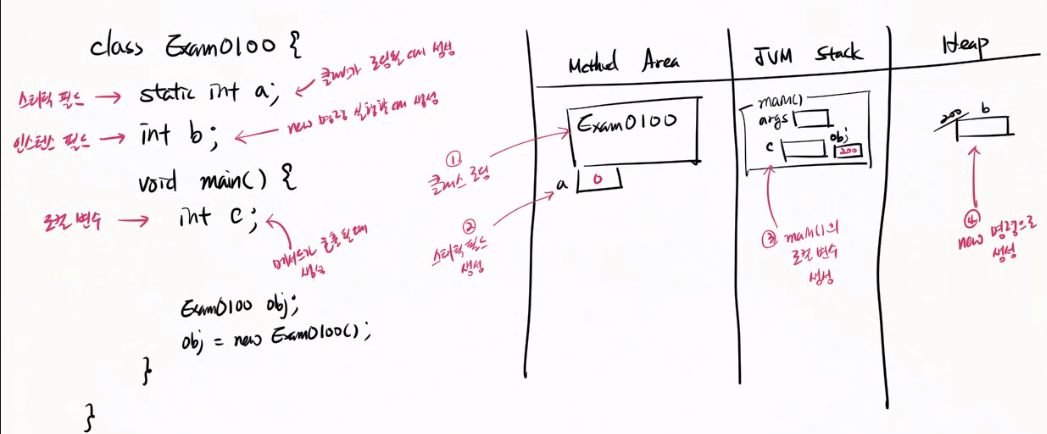 class Exam0100 {
스태틱 필드 → static int a; ← 클래스가 로딩될 때 생성
인스턴스 필드 → int b; ← new 명령 실행할 때 생성
void main() {
로컬 변수 → int c; ← 메서드가 호출될 때
생성
Exam0100 obj;
obj = new Exam0100();
}
}
Method Area
Exam0100
①
클래스 로딩
a 0
②
스태틱 필드
생성
JVM Stack
main()
args
c
obj
200
③ main()의
로컬 변수
생성
Heap
200 b
④
new 명령으로
생성